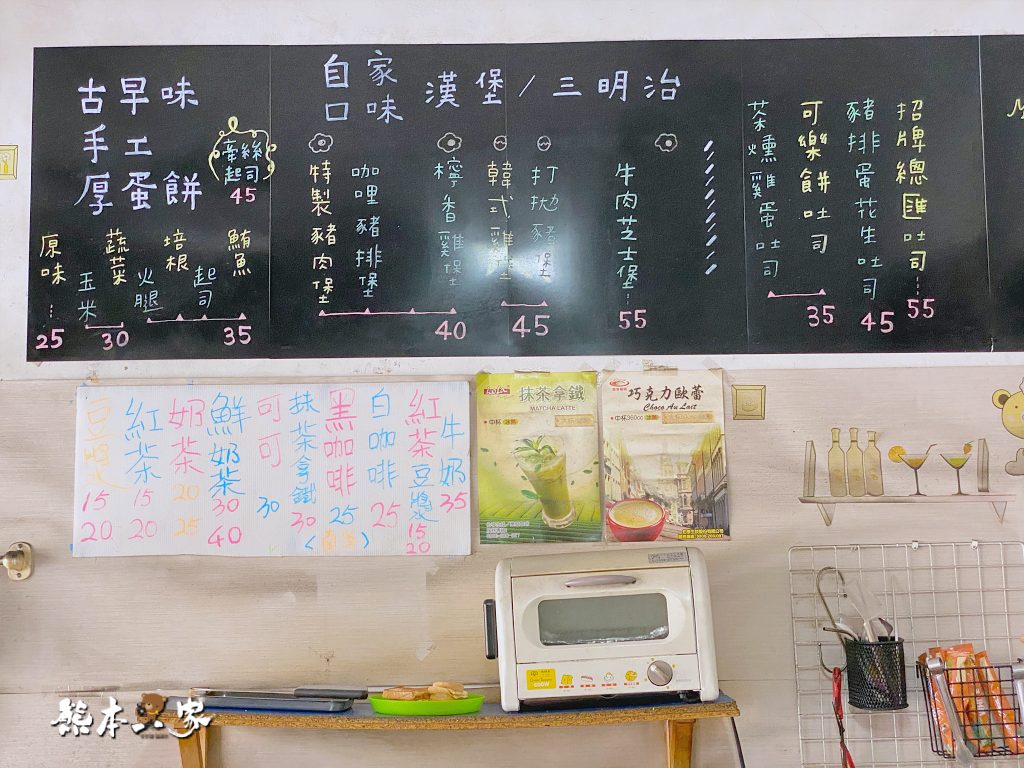 古早味
手工
厚蛋餅
牽絲
起司
45
原味…
25
玉米
蔬菜
30
火腿
培根
起司
鮪魚
35
自家
口味
漢堡/三明治
特製豬肉堡
咖哩豬排堡
檸香雞腿堡
40
韓式雞堡
打拋豬堡
45
牛肉芝士堡…
55
茶燻雞蛋吐司
可樂餅吐司
35
豬排蛋花生吐司
45
招牌總匯吐司…
55
豆漿
15
20
紅茶
15
20
奶茶
20
25
鮮奶茶
30
40
可可
30
抹茶拿鐵
30
黑咖啡
25
白咖啡
25
紅茶豆漿
15
20
牛奶
35
抹茶拿鐵
MATCHA LATTE
巧克力歐蕾
Choco Au Lait
中杯360cc
熊本一家